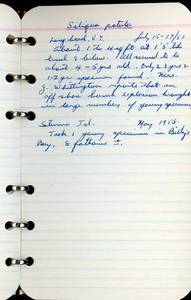 Siliqua patula
Long Beach, V.I. July 15-17/53
About 1 to 4 sq ft at 1'5 tide
level & below. All seemed to be
about 4-5 yrs old. Only 2 3 yrs &
1-2 yr specimen found. Mrs.
J. Whittington reports that an
off shore bomb explosion brought
in large numbers of young specimens
Saturna Isl. May 1955
Took 1 young specimen in Billy's
Bay, 8 fathoms ±.